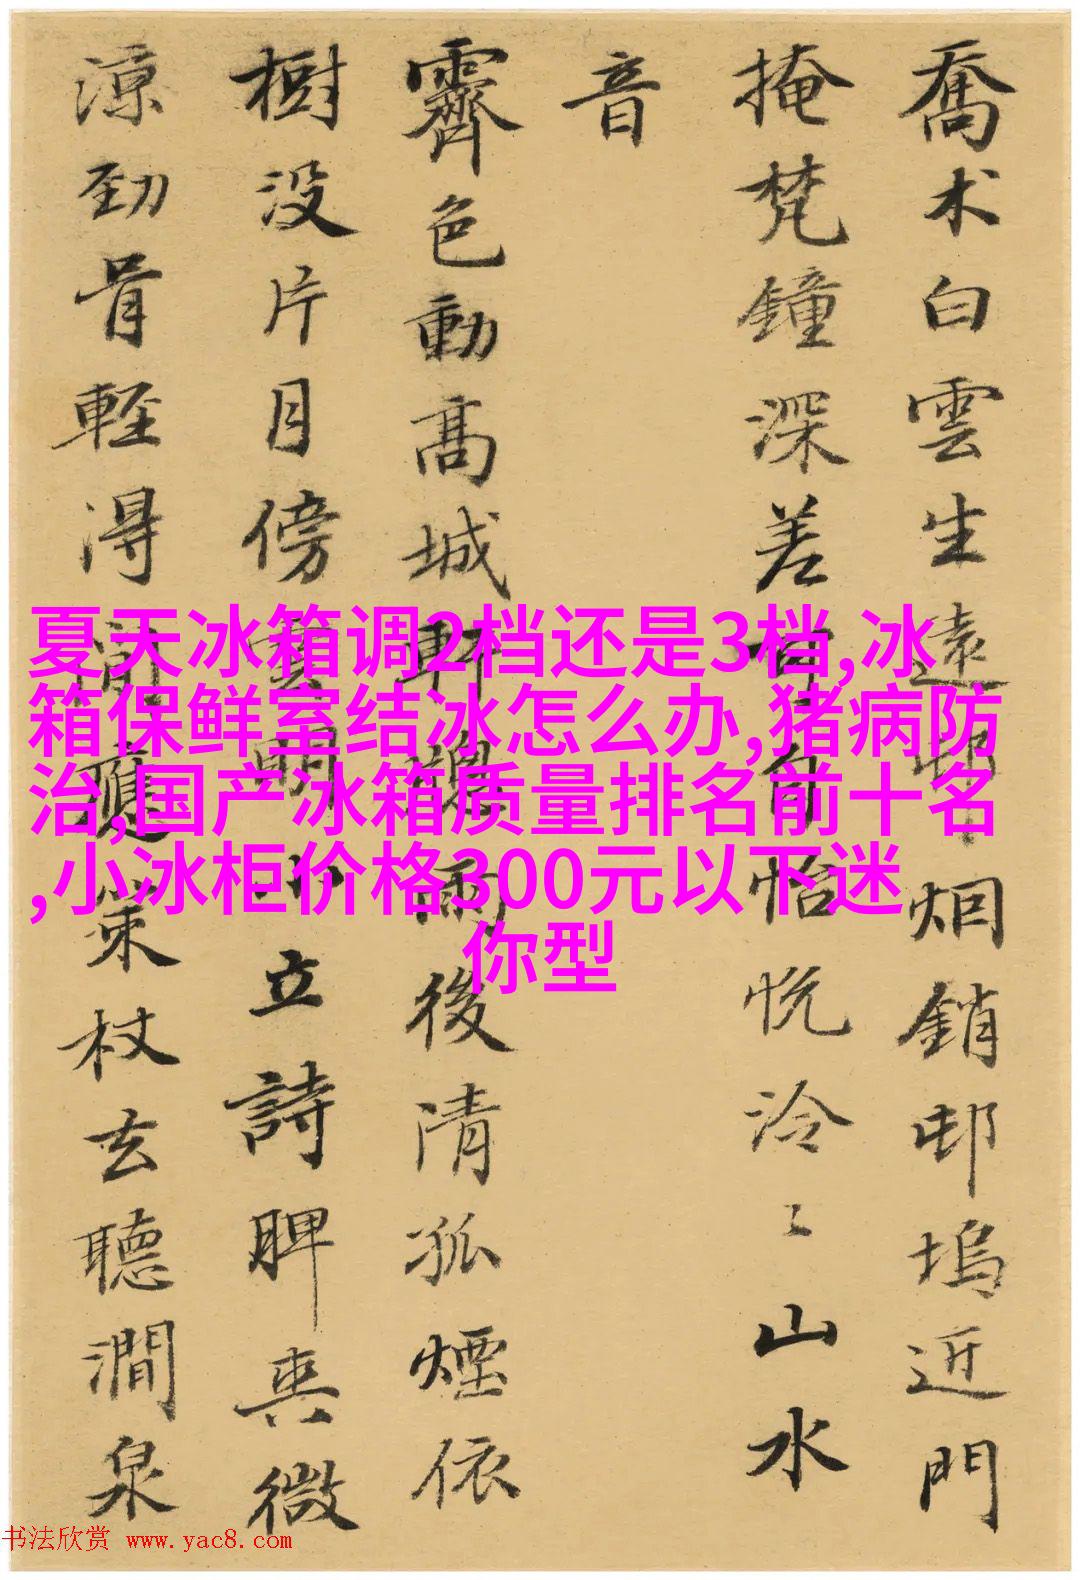 喬木白雲生遠邨烟銷邨塢近門
掩梵鐘深差可自怡悦泠〻山水
音
霽色動高城軒聰雨後清孤煙依
樹没片月傍雲明小立詩脾爽微
涼勁骨輕得閒應策杖去聽澗泉
夏天冰箱调2档还是3档,冰
箱保鲜室结冰怎么办,猪病防
治,国产冰箱质量排名前十名
,小冰柜价格300元以下迷
你型
书法欣赏 www.yac8.com